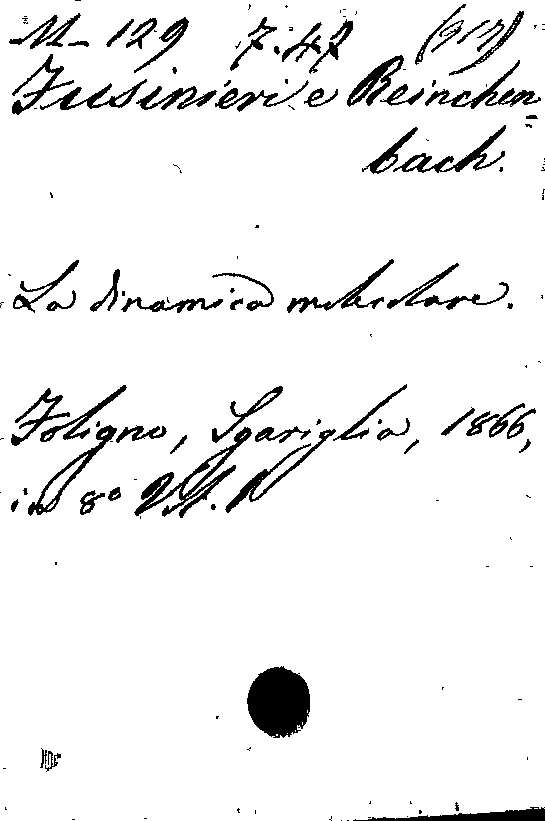 M- 129 7.47 (917)
Fusinieri e Reinchen=
bach.
La dinamica molecolare.
Foligno, Sgariglia, 1866,
in 8°